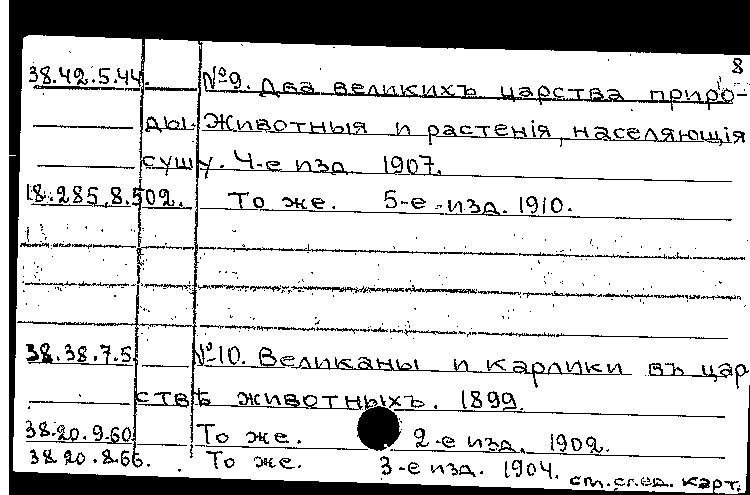 8
38.42.5.44. №9. Два великихъ царства приро-
ды. Животныя и растенія, населяющія
сушу. 4-е изд. 1907.
18.285.8.509. То же. 5-е изд. 1910.
38.38.7.5. №10. Великаны и карлики въ цар
ствѣ животныхъ. 1899.
38.20.9.60. То же. 2-е изд. 1902.
38.20.8.66. То же. 3-е изд. 1904. см. след. карт.